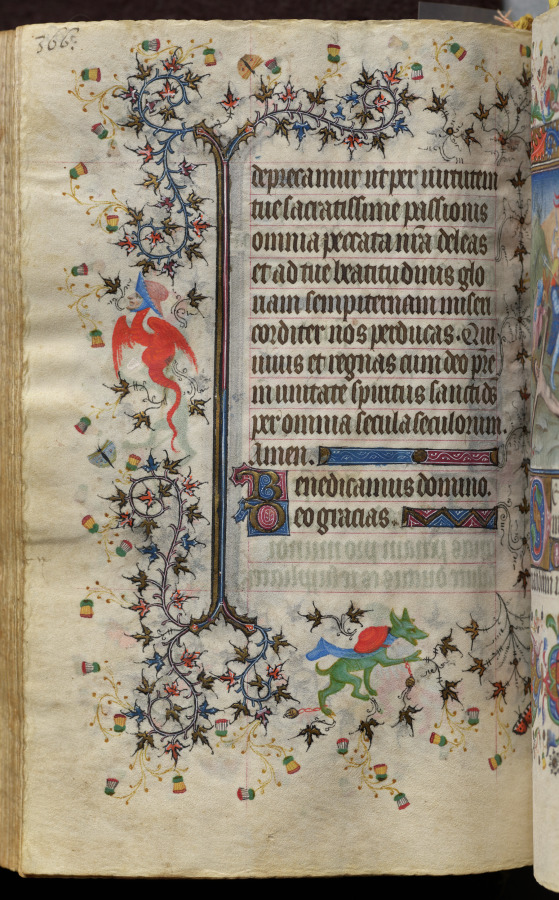 366.
deprecamur ut per uirtutem
tue sacratissime passionis
omnia peccata nr̄a deleas
et ad tue beatitudinis glo
riam sempiternam miseri
corditer nos perducas. Qui
uiuis et regnas cum deo pr̄e
in unitate spiritus sancti ds̄
per omnia secula seculorum.
Amen.
Benedicamus domino.
Deo gracias.